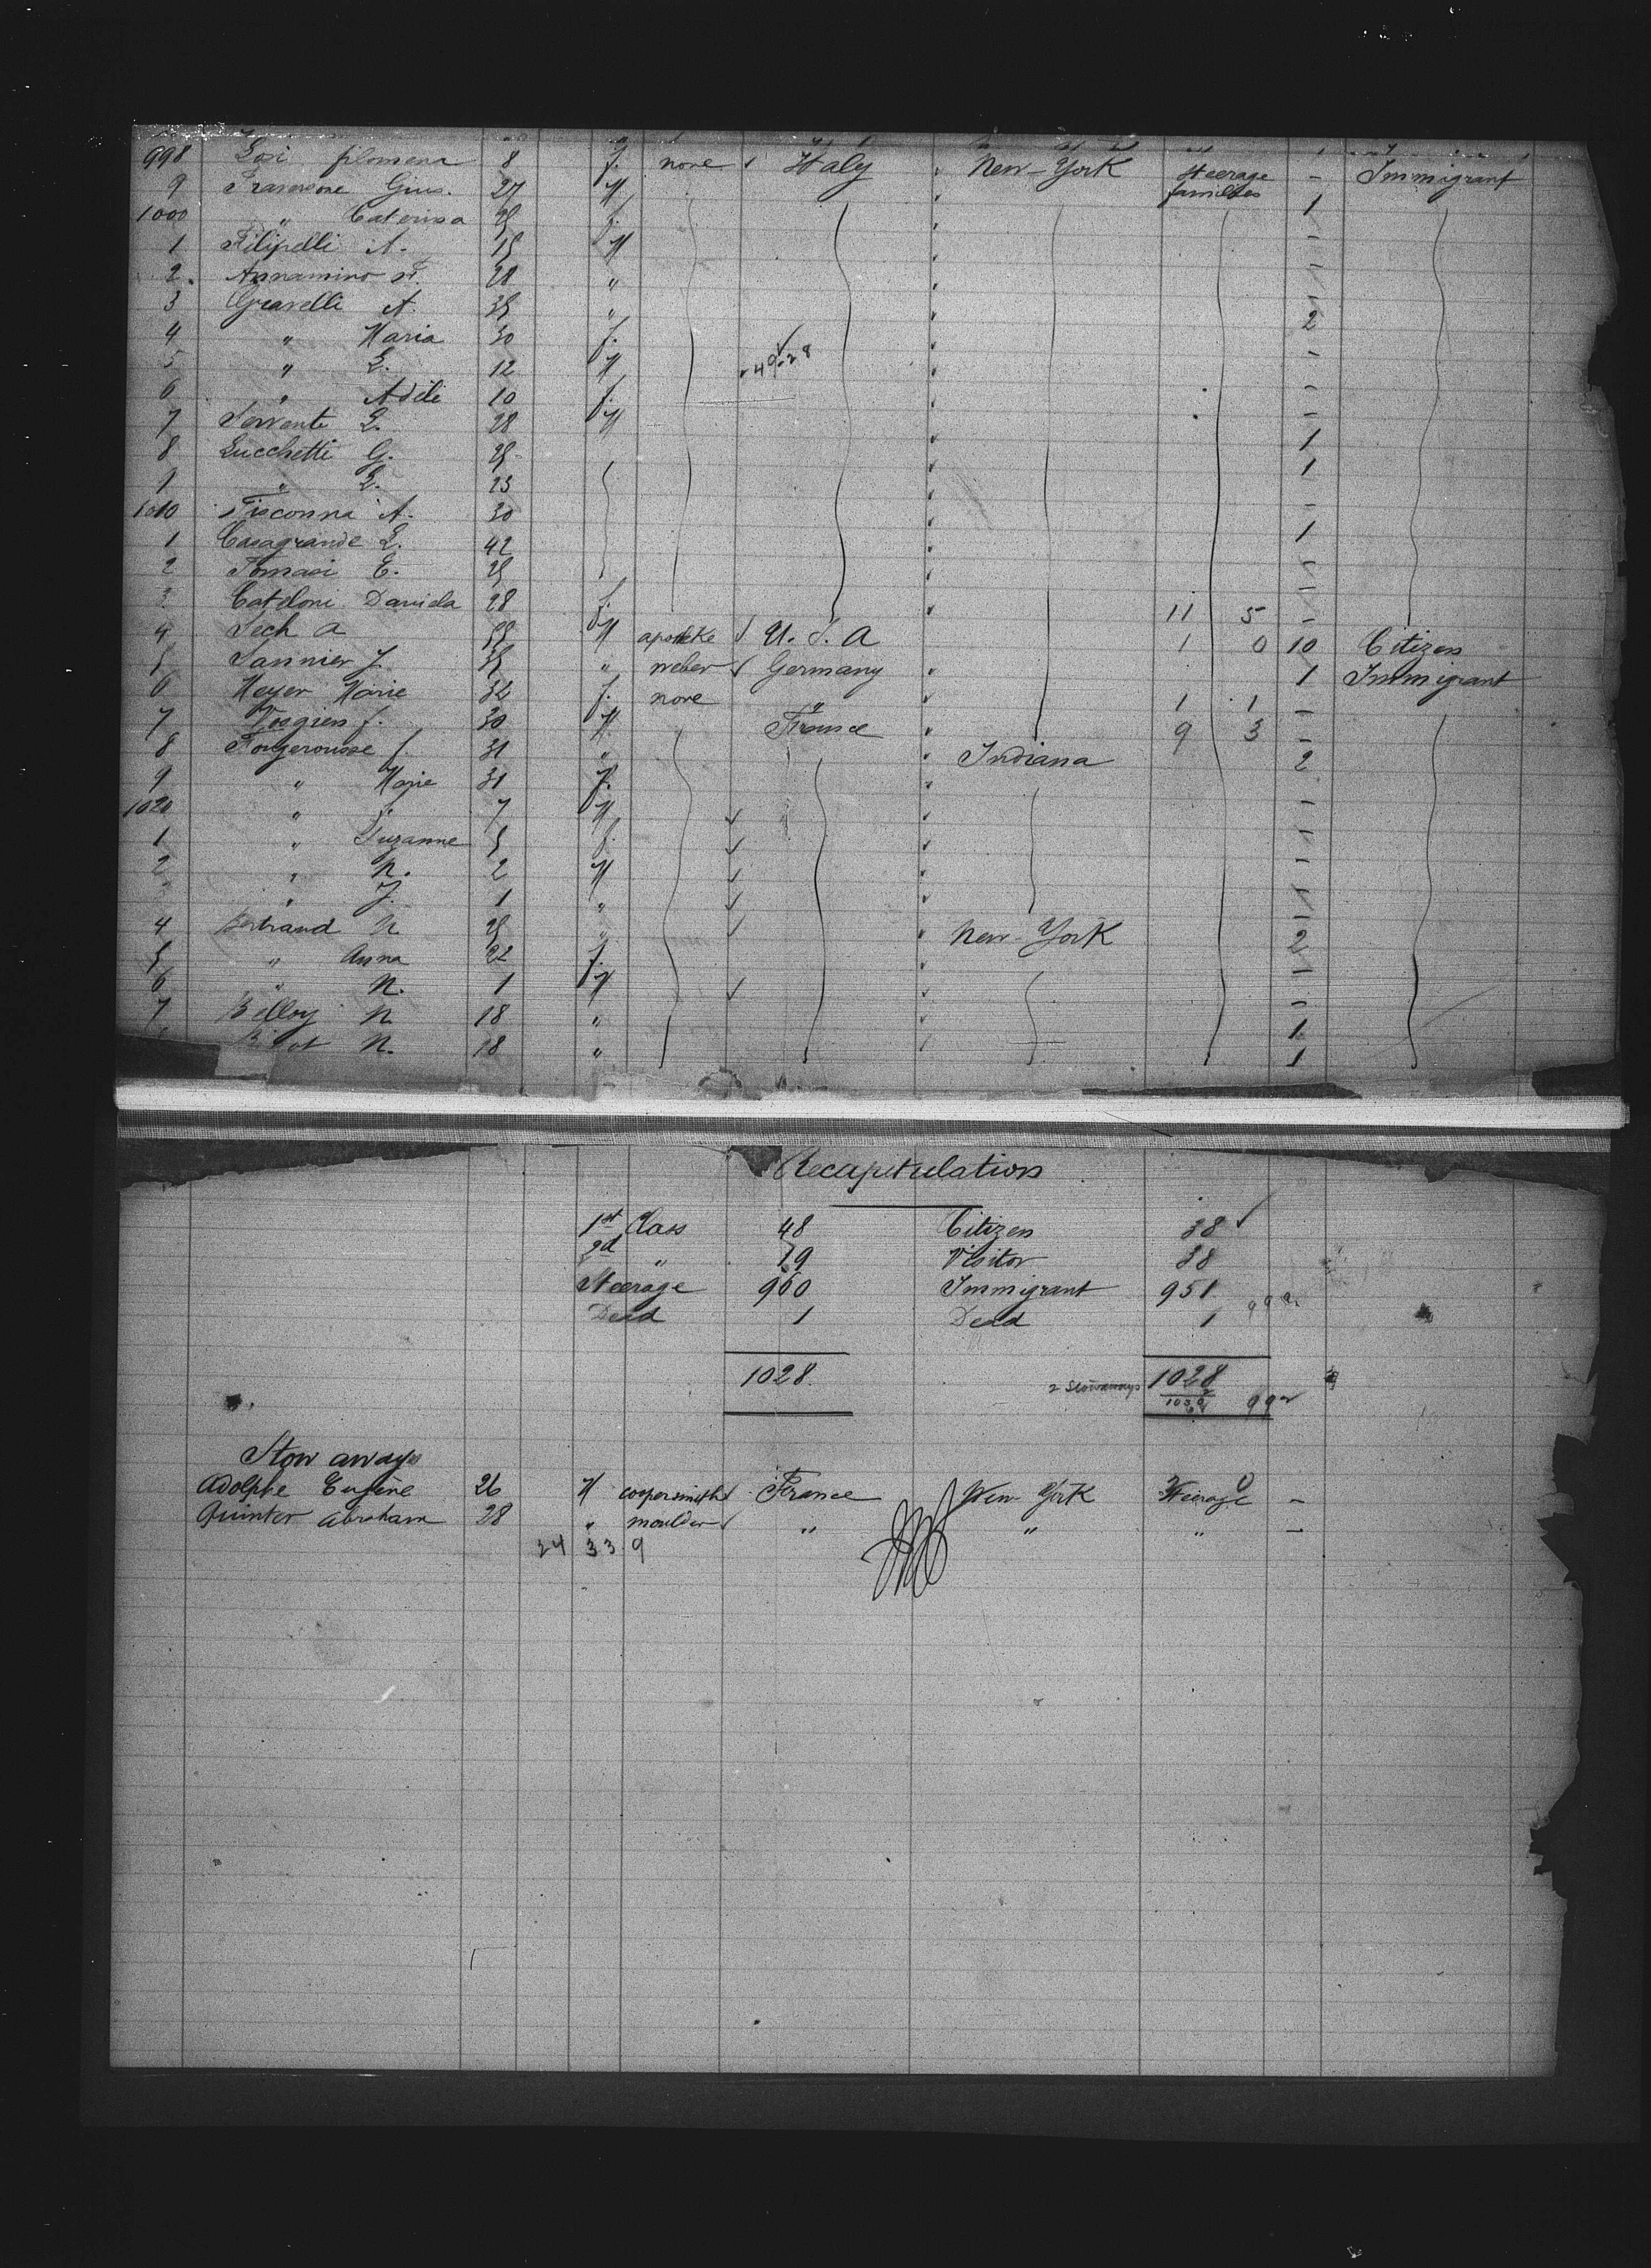 998 Losi filomena 8 f. none ✓ Italy New-York Steerage families - Immigrant
9 Traversone Gius. 27 M 1
1000 " Caterina 25 f. -
1 Filipelli A. 15 M -
2 Annamino 28 " 1
3 Gravelli A. 35 " 2
4 " Maria 30 f. -
5 " L. 12 M -
6 " Adele 10 f. -
7 Servente L. 28 M 1
8 Lucchetti G. 25 1
9 " L. 23 -
1010 Tisconna A. 30 1
1 Casagrande L. 42 -
2 Tomasi E. 25 -
3 Cateloni Daniela 28 f. 11 5 -
4 Sech A 55 M apoteke ✓ U.S.A 1 0 10 Citizen
5 Sannier J. 35 " weber ✓ Germany 1 Immigrant
6 Meyer Marie 32 f. none " 1 1 -
7 Vosgien f. 30 M. France 9 3 -
8 Fougerousse f. 31 " Indiana 2
9 " Marie 31 f. -
1020 " 7 M ✓ -
1 " Suzanne 5 f. ✓ -
2 " N. 2 M ✓ 1
" J. 1 " ✓ -
4 Bertrand N 25 " ✓ New-York 2
5 " Anna 22 f. -
6 " N. 1 M ✓ -
7 Billoy N 18 " 1
N. 18 " 1
Recapitulation
1st Class 48 Citizen 38 ✓
2d " 19 Visitor 38
Steerage 960 Immigrant 951
Dead 1 Dead 1
1028 2 Stowaways 1028
992
Stow aways
Adolphe Eugène 26 M coopersmith France New-York Steerage -
Quinter Abraham 28 " moulder " " " -
24 33 9